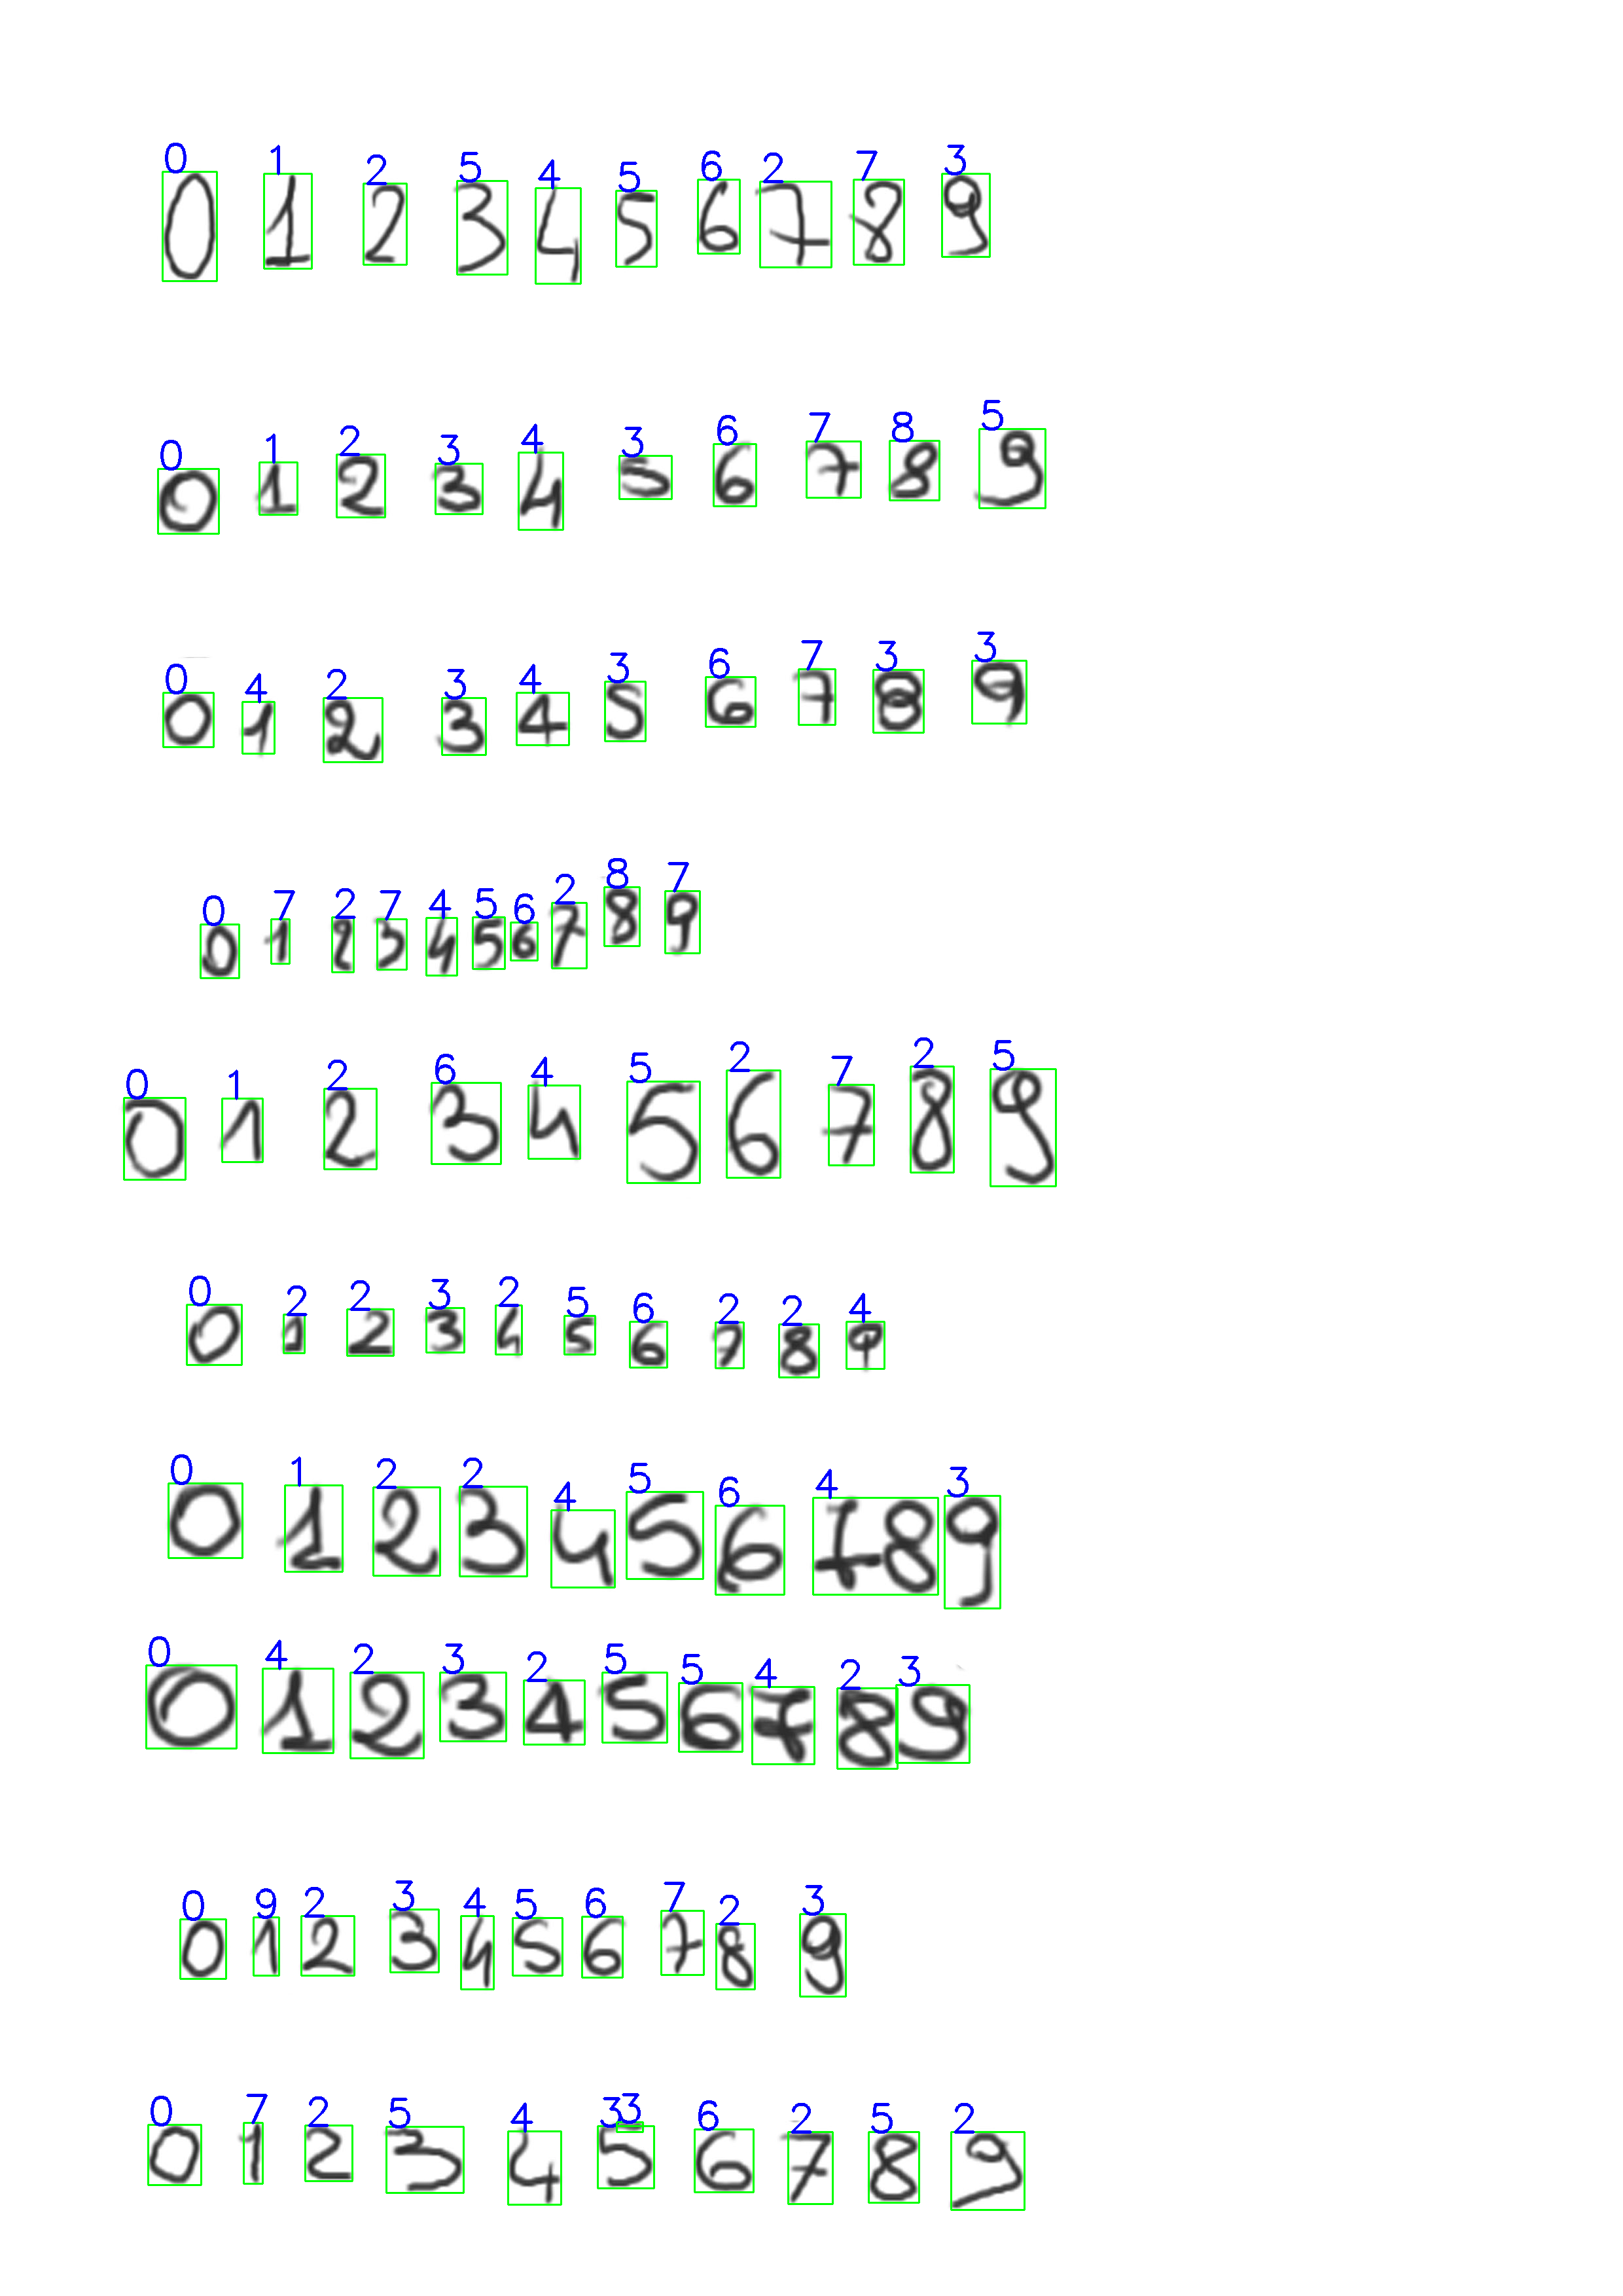 0 1 2 5 4 5 6 2 7 3
0 1 2 3 4 5 6 7 8 9
0 1 2 3 4 3 6 7 8 5
0 1 2 3 4 5 6 7 8 9
0 4 2 3 4 3 6 7 3 3
0 1 2 3 4 5 6 7 8 9
0 7 2 7 4 5 6 2 8 7
0 1 2 3 4 5 6 7 8 9
0 1 2 6 4 5 2 7 2 5
0 1 2 3 4 5 6 7 8 9
0 2 2 3 2 5 6 2 2 4
0 1 2 3 4 5 6 7 8 9
0 1 2 2 4 5 6 4 3
0 1 2 3 4 5 6 7 8 9
0 4 2 3 2 5 5 4 2 3
0 1 2 3 4 5 6 7 8 9
0 9 2 3 4 5 6 7 2 3
0 1 2 3 4 5 6 7 8 9
0 7 2 5 4 3 3 6 2 5 2
0 1 2 3 4 5 6 7 8 9